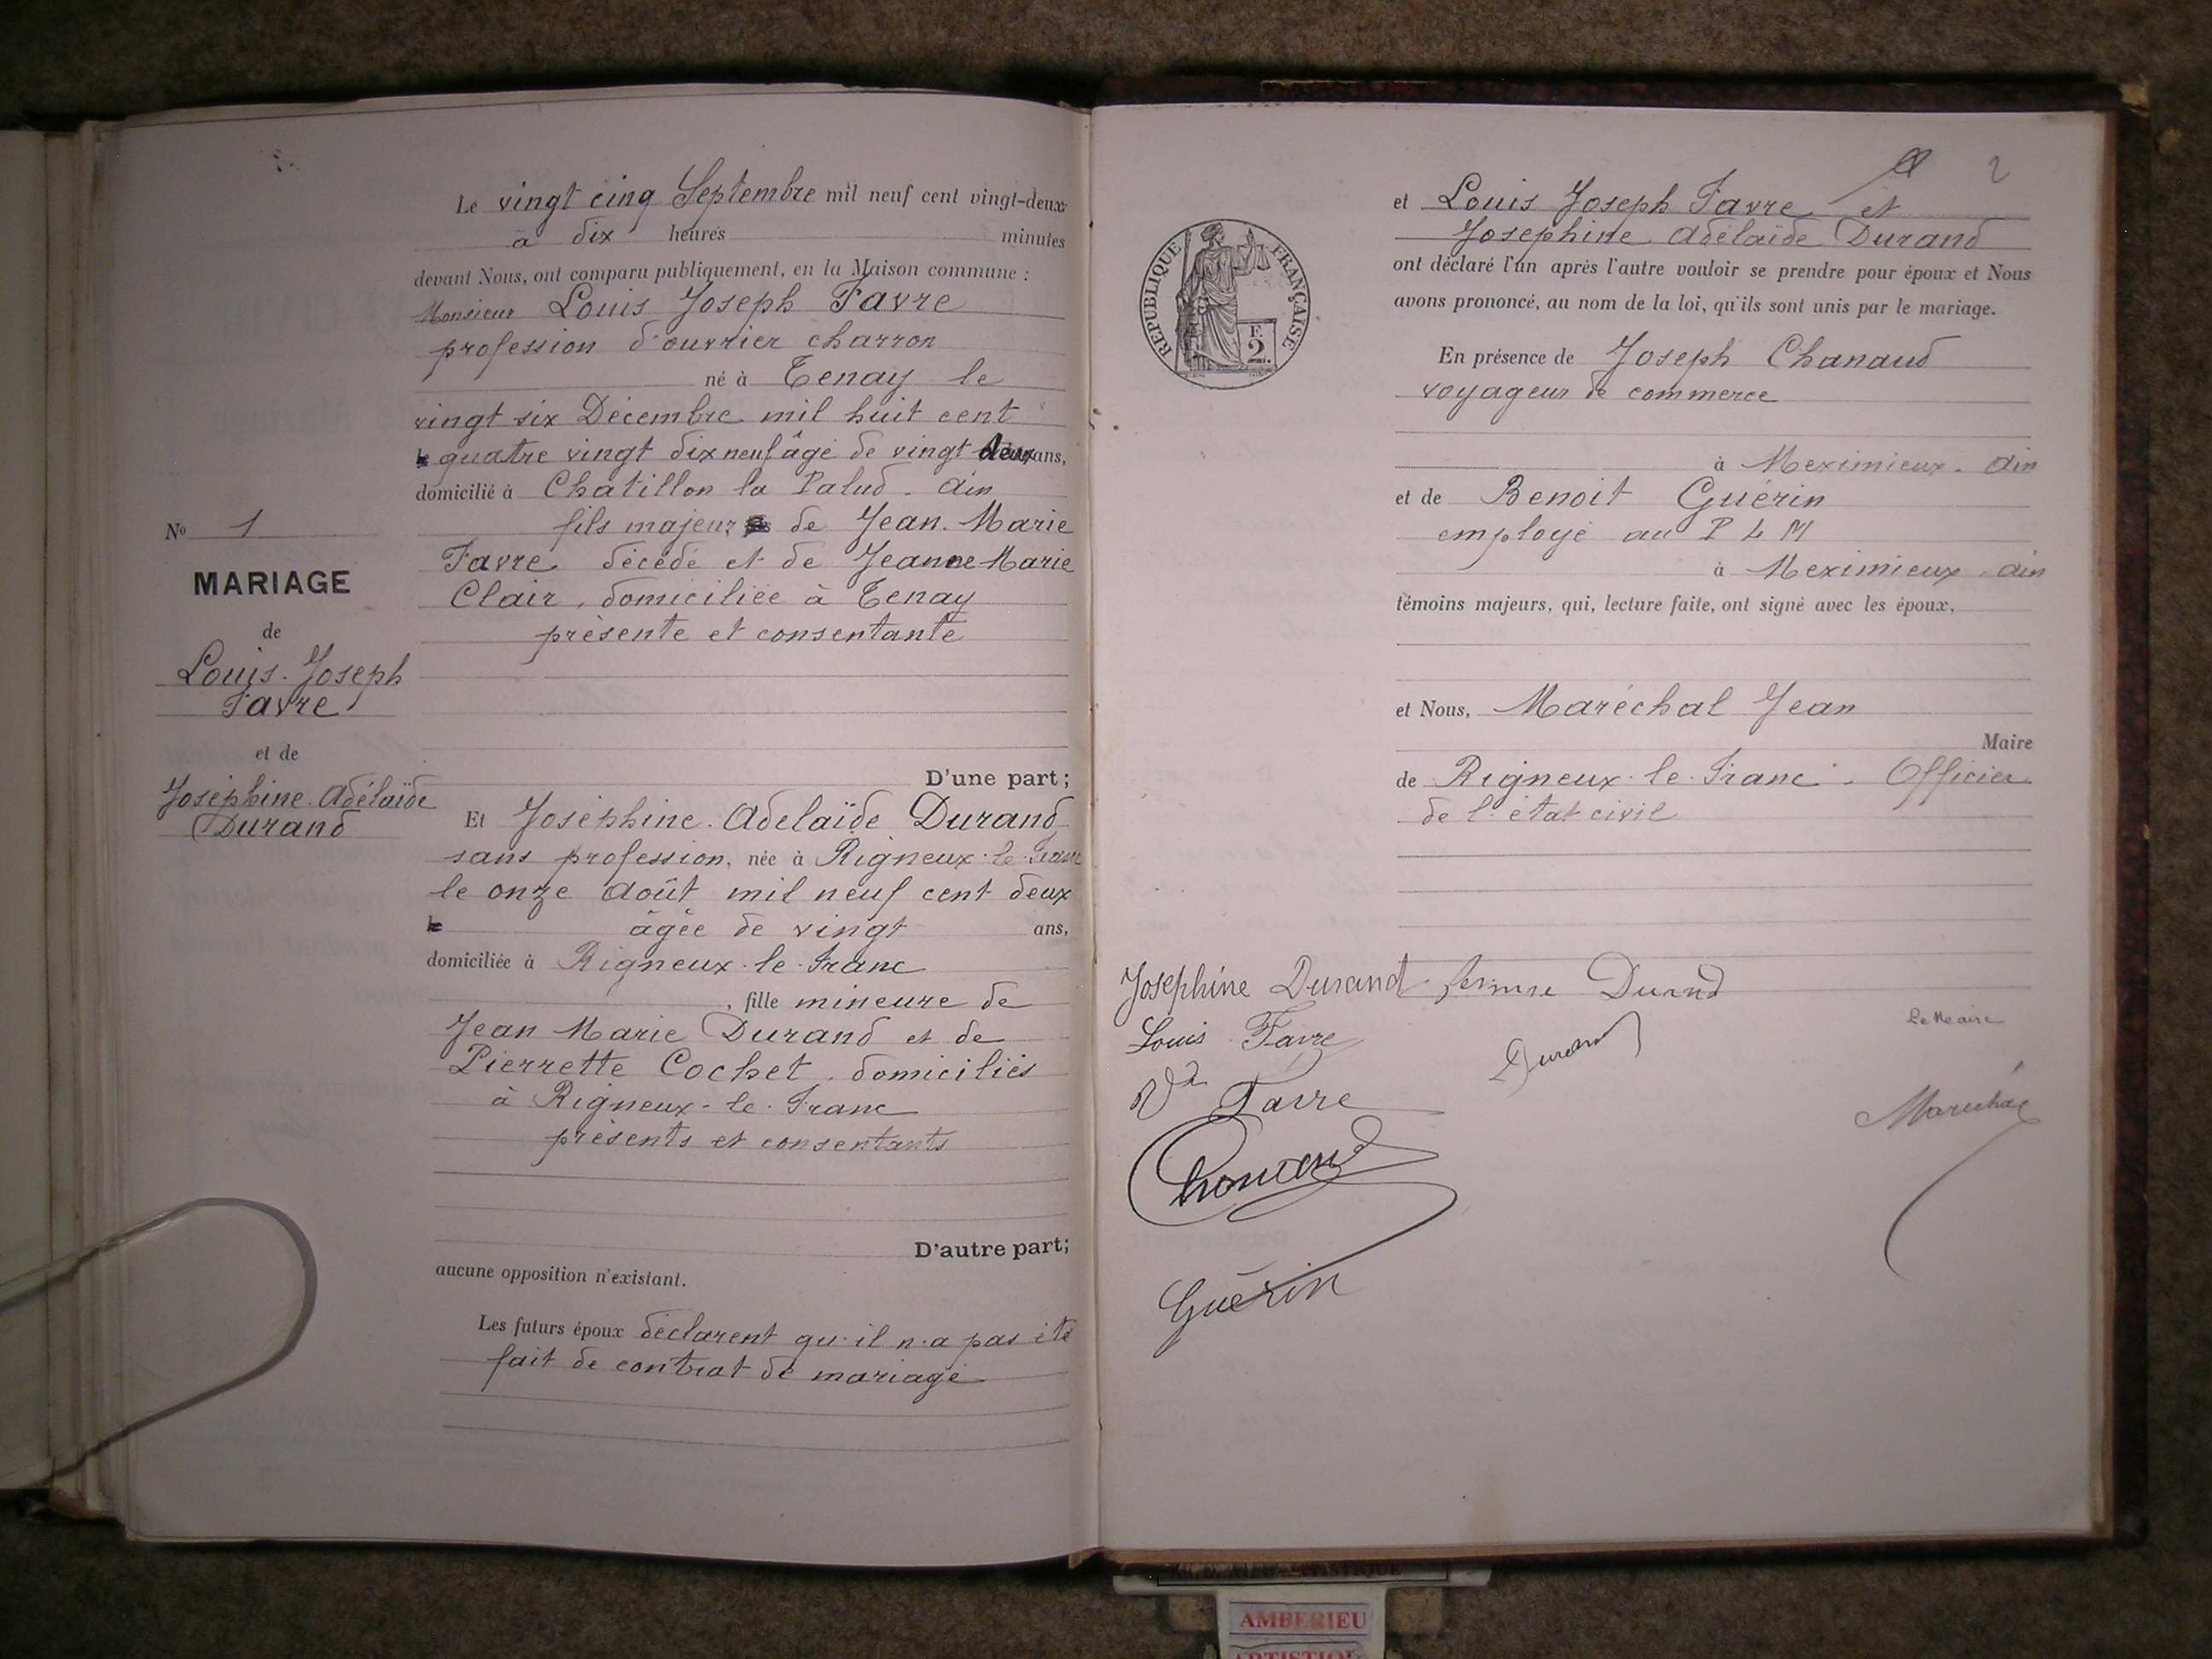 Le vingt cinq Septembre mil neuf cent vingt-deux
à dix heures minutes
devant Nous, ont comparu publiquement, en la Maison commune :
Monsieur Louis Joseph Favre
profession d'ouvrier charron
né à Tenay le
vingt six Décembre mil huit cent
quatre vingt dix neuf âgé de vingt deux ans,
domicilié à Chatillon la Palud. Ain
fils majeur de Jean. Marie
Favre décédé et de Jeanne Marie
Clair, domiciliée à Tenay
présente et consentante
D'une part;
No 1
MARIAGE
de
Louis. Joseph
Favre
et de
Joséphine. Adélaïde
Durand
Et Joséphine. Adelaïde Durand
sans profession, née à Rigneux-le-Franc
le onze Août mil neuf cent deux
âgée de vingt ans,
domiciliée à Rigneux-le-Franc
, fille mineure de
Jean Marie Durand et de
Pierrette Cochet, domiciliés
à Rigneux-le-Franc
présents et consentants
D'autre part;
aucune opposition n'existant.
Les futurs époux déclarent qu'il n'a pas été
fait de contrat de mariage
2
RÉPUBLIQUE FRANÇAISE
F.
2
et Louis Joseph Favre et
Josephine Adélaïde Durand
ont déclaré l'un après l'autre vouloir se prendre pour époux et Nous
avons prononcé, au nom de la loi, qu'ils sont unis par le mariage.
En présence de Joseph Chanaud
voyageur de commerce
à Meximieux. Ain
et de Benoit Guérin
employé au P L M
à Meximieux. Ain
témoins majeurs, qui, lecture faite, ont signé avec les époux,
et Nous, Maréchal Jean
Maire
de Rigneux-le-Franc. Officier
de l'état civil
Josephine Durand femme Durand
Louis Favre
Durand
Le Maire
Vve Favre
Maréchal
Chanaud
Guérin
AMBERIEU
ARTISTIQUE